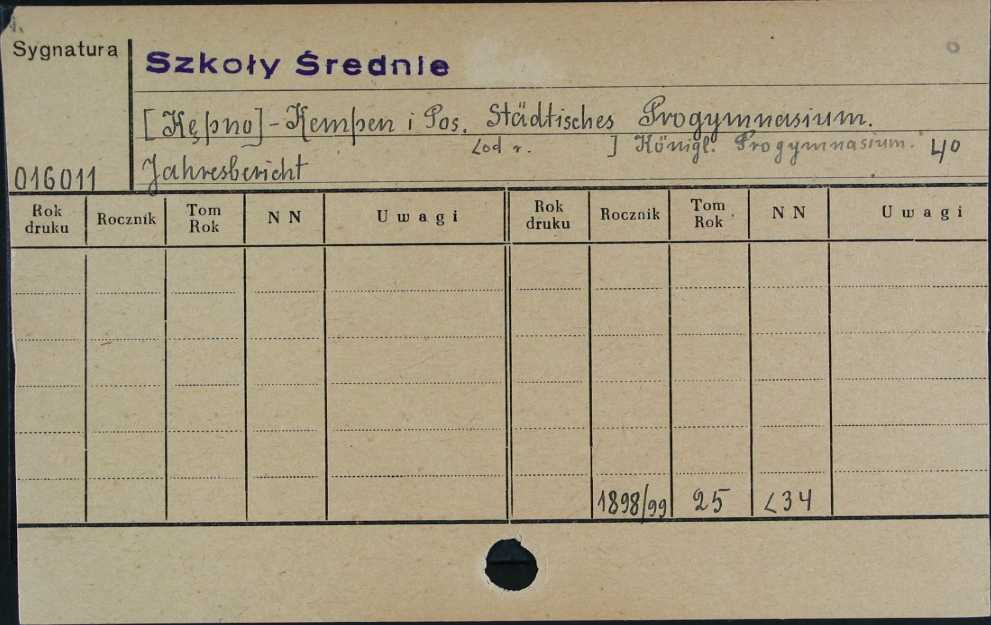 Sygnatura
Szkoły Średnie
[Kępno] - Kempen i Pos. Städtisches Progymnasium.
<od r. ] Königl. Progymnasium. 4°
016011 Jahresbericht
Rok druku Rocznik Tom Rok NN Uwagi Rok druku Rocznik Tom Rok NN Uwagi
1898/99 25 <34